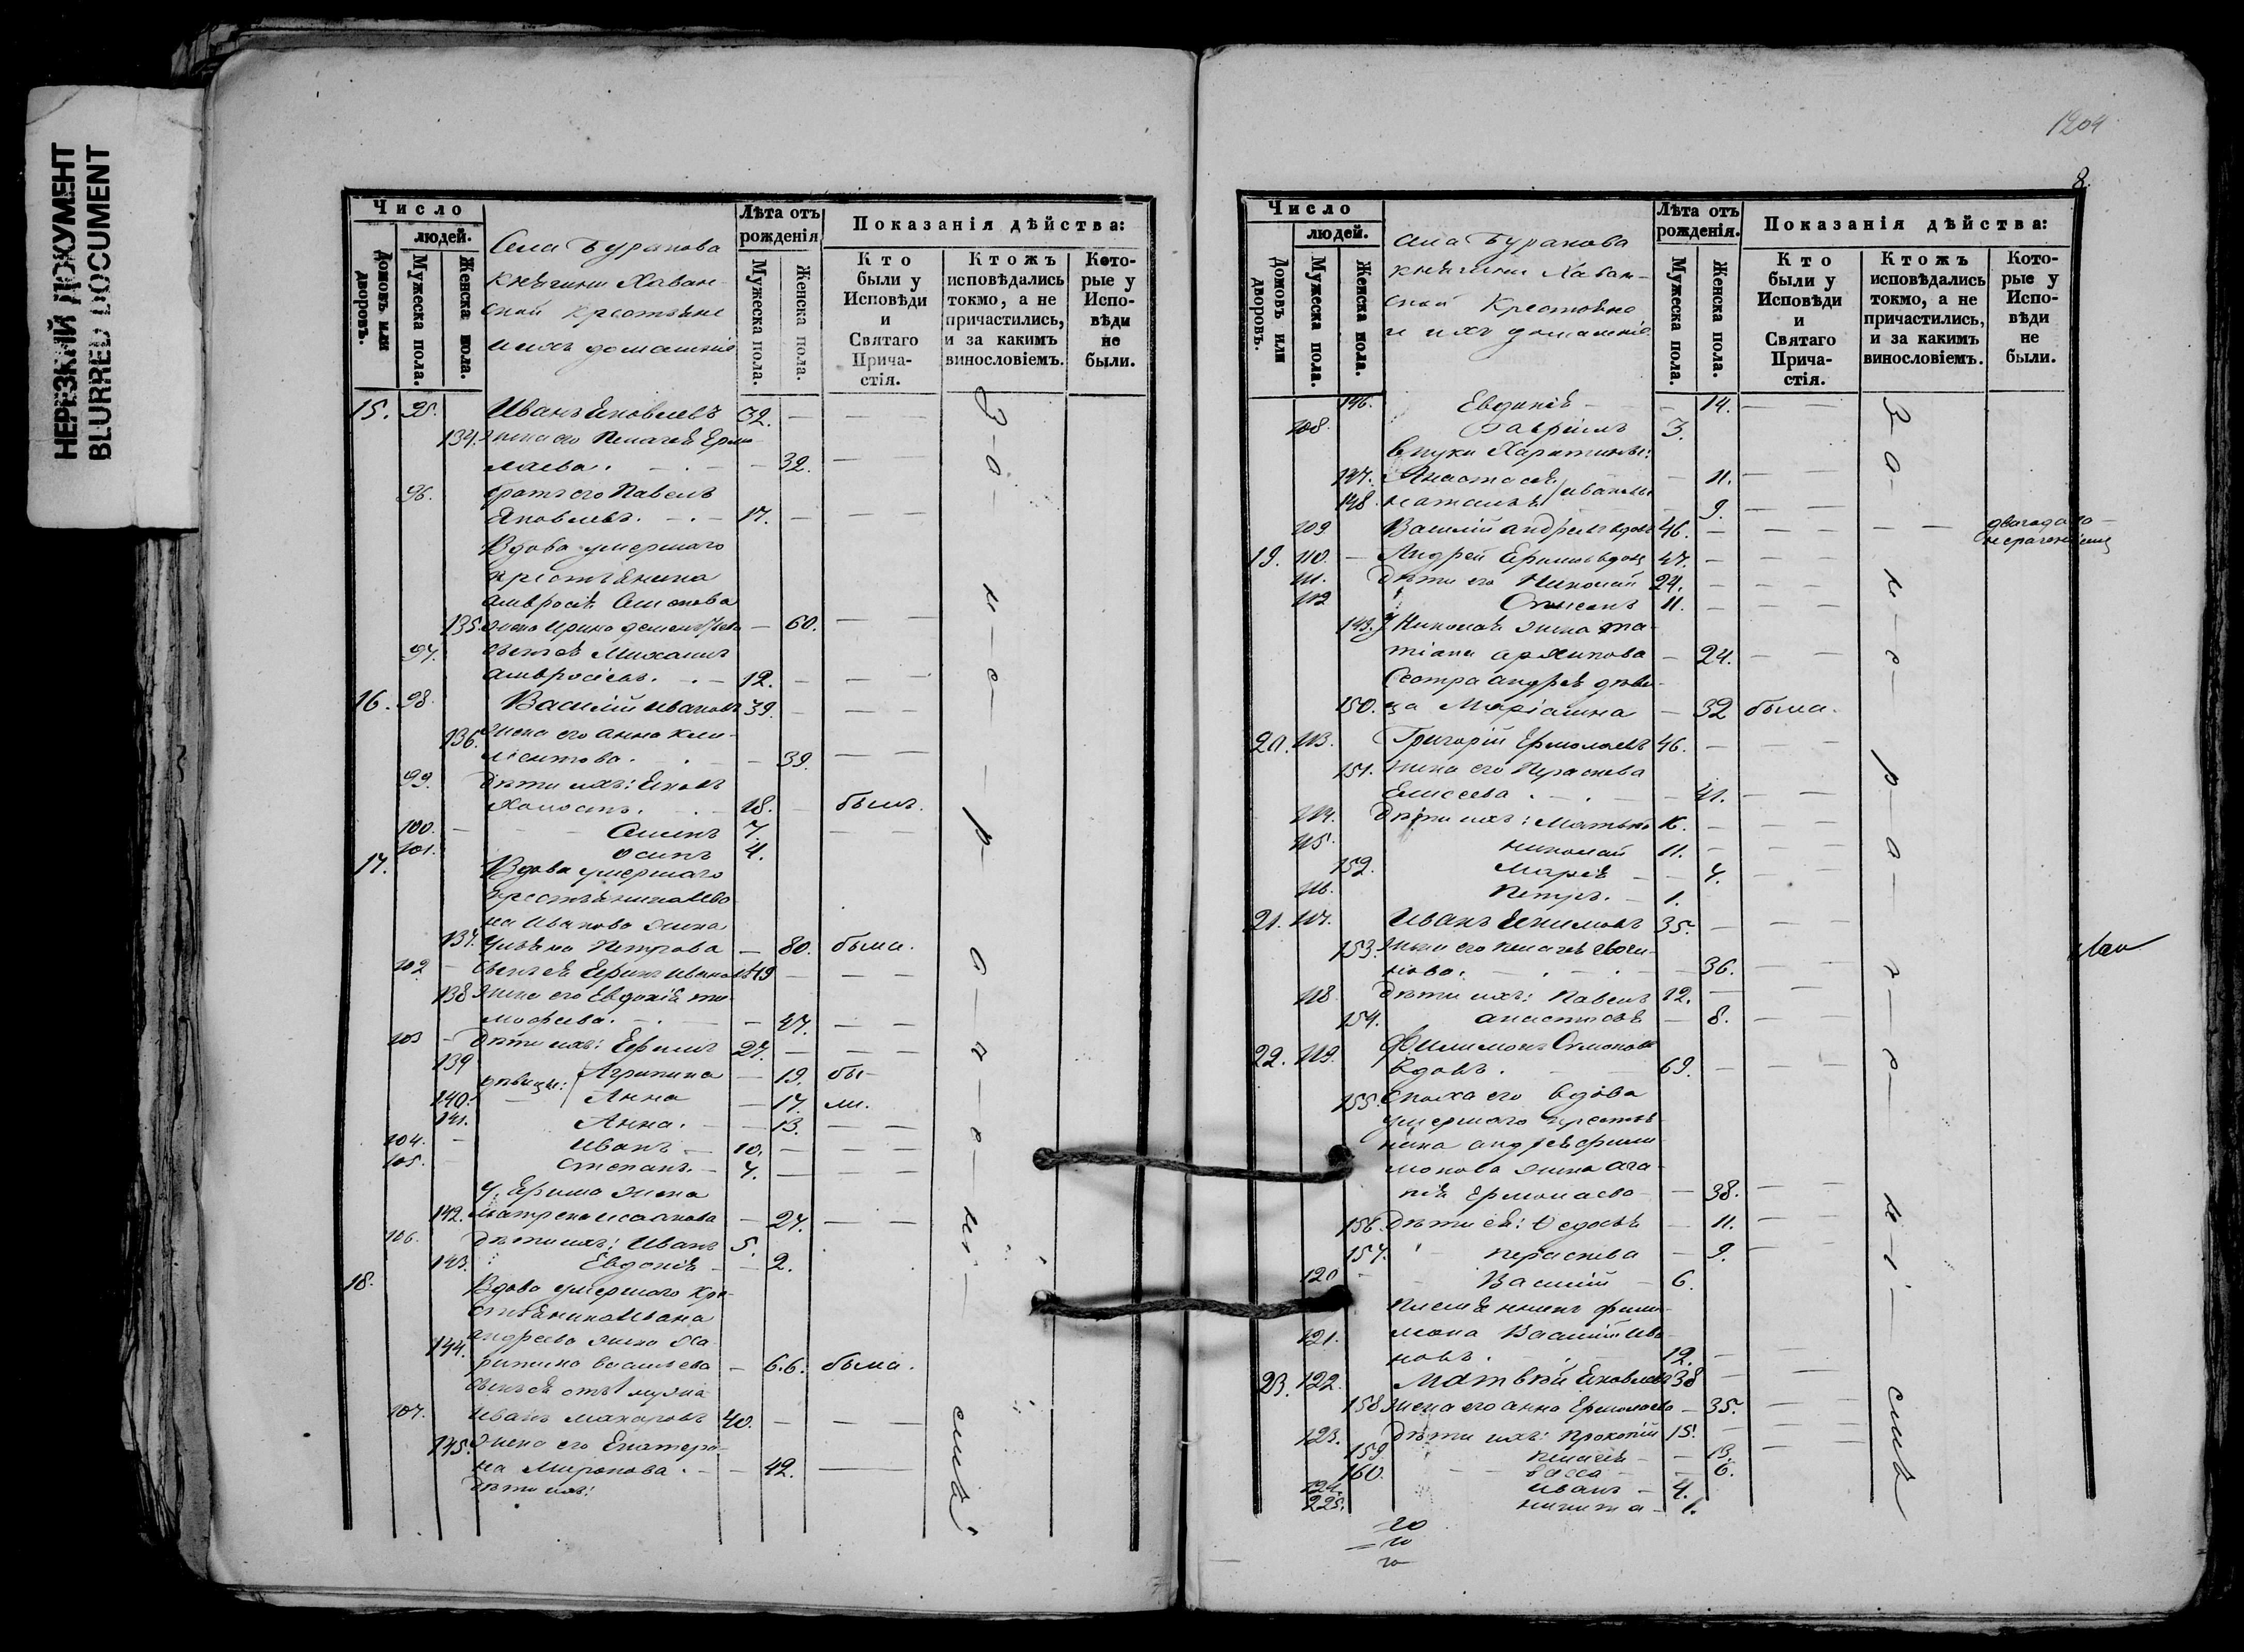 НЕРЕЗКИЙ ДОКУМЕНТ
BLURRED DOCUMENT
Число
людей.
Домовъ или дворовъ.
Мужеска пола.
Женска пола.
Села Буракова
княгини Хован-
ской крестьяне
и ихъ домашніе
Лѣта отъ рожденія
Мужеска пола.
Женска пола.
Показанія дѣйства:
Кто были у Исповѣди и Святаго Прича-стія.
Ктожъ исповѣдались токмо, а не причастились, и за какимъ винословіемъ.
Кото-рые у Испо-вѣди не были.
15. 95. Иванъ Яковлевъ 32.
134. жена его Пелагея Ермо-
лаева. 32.
96. братъ его Павелъ
Яковлевъ. 17.
Вдова умершаго
крестьянина
Амвросія Симонова
135. жена Ирина Дементьева 60.
97. сынъ ея Михаилъ
Амвросіевъ. 12.
16. 98. Василій Ивановъ 39.
136. жена его Анна Кли-
ментова. 39.
99. дѣти ихъ: Яковъ
холостъ. 18. былъ.
100. Семенъ 7.
101. Осипъ 4.
17. Вдова умершаго
крестьянина Ива-
на Иванова жена
137. Ульяна Петрова 80. была.
102. сынъ ея Ефимъ Ивановъ 49
138 жена его Евдокія Ти-
мофеева. 47.
103 дѣти ихъ: Ефимъ 27.
139 дѣвицы: Агрипина 19. бы-
140. Анна 17. ли.
141. Анна. 13.
104. Иванъ 10.
105. Степанъ. 7.
у Ефима жена
142. Матрена Исаакова 27.
106. дѣти ихъ: Иванъ 5.
143. Евдокія 2.
18. Вдова умершаго кре-
стьянина Ивана
Андреева жена Ха-
144. ритина Васильева 66. была.
сынъ ея отъ 1 мужа
107. Иванъ Макаровъ 40.
145. жена его Екатери-
на Миронова. 42.
дѣти ихъ:
за не раченіемъ
1204
8.
Число
людей.
Домовъ или дворовъ.
Мужеска пола.
Женска пола.
Села Буракова
княгини Хован-
ской крестьяне
и ихъ домашніе
Лѣта отъ рожденія.
Мужеска пола.
Женска пола.
Показанія дѣйства:
Кто были у Исповѣди и Святаго Прича-стія.
Ктожъ исповѣдались токмо, а не причастились, и за какимъ винословіемъ.
Кото-рые у Испо-вѣди не были.
146. Евдокія 14.
108. Гавріилъ 3.
внуки Харитины:
147. Анастасія 11.
148. Наталья Ивановы 9.
109 Василій Андреевъ вдовъ 46.
19. 110. Андрей Ефимовъ вдовъ 47.
111. дѣти его Николай 24.
112 Степанъ 11.
149. у Николая жена Та-
тіана Архипова 24.
Сестра Андрея дѣви-
150. ца Маріамна 32 была.
20. 113. Григорій Ермолаевъ 46.
151. жена его Параскева
Елисеева. 41.
114. дѣти ихъ: Матвѣй 16.
115. Николай 11.
152. Марія 4.
116. Петръ. 1.
21. 117. Иванъ Якимовъ 35.
153. жена его Пелагея
36.
118 дѣти ихъ: Павелъ 12.
154. Анастасія 8.
22. 119. Филимонъ Симоновъ
вдовъ. 69.
155. сноха его вдова
умершаго крестья-
нина Андрея Фили-
монова жена Ага-
пія Ермолаева 38.
156. дѣти ея: Ѳедосья 11.
157. Параскева 9.
120 Василій 6.
племянникъ Фили-
121. мона Василій Ива-
новъ. 12.
23. 122. Матвѣй Яковлевъ 38
158 жена его Анна Ермолаева 35.
123. дѣти ихъ: Прокопій 15.
159. Пелагея 13.
160. Васса 6.
124. Иванъ 4.
225. Никита 1.
за не раченіемъ
20
10
70